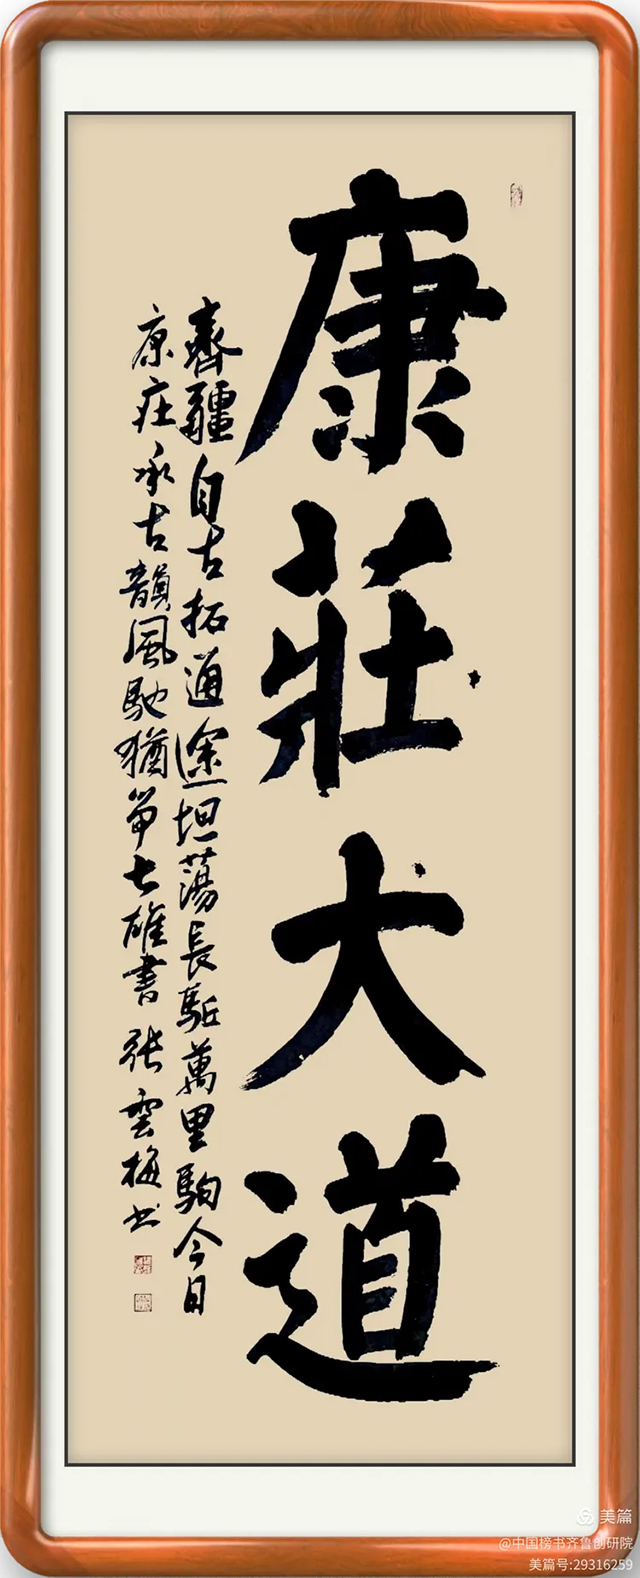 康莊大道
齊疆自古拓通途坦蕩長駈萬里駒今日
康莊承古韻風馳猶筭七雄書 張雲梅书
美篇
@中国榜书齐鲁创研院
美篇号:29316259